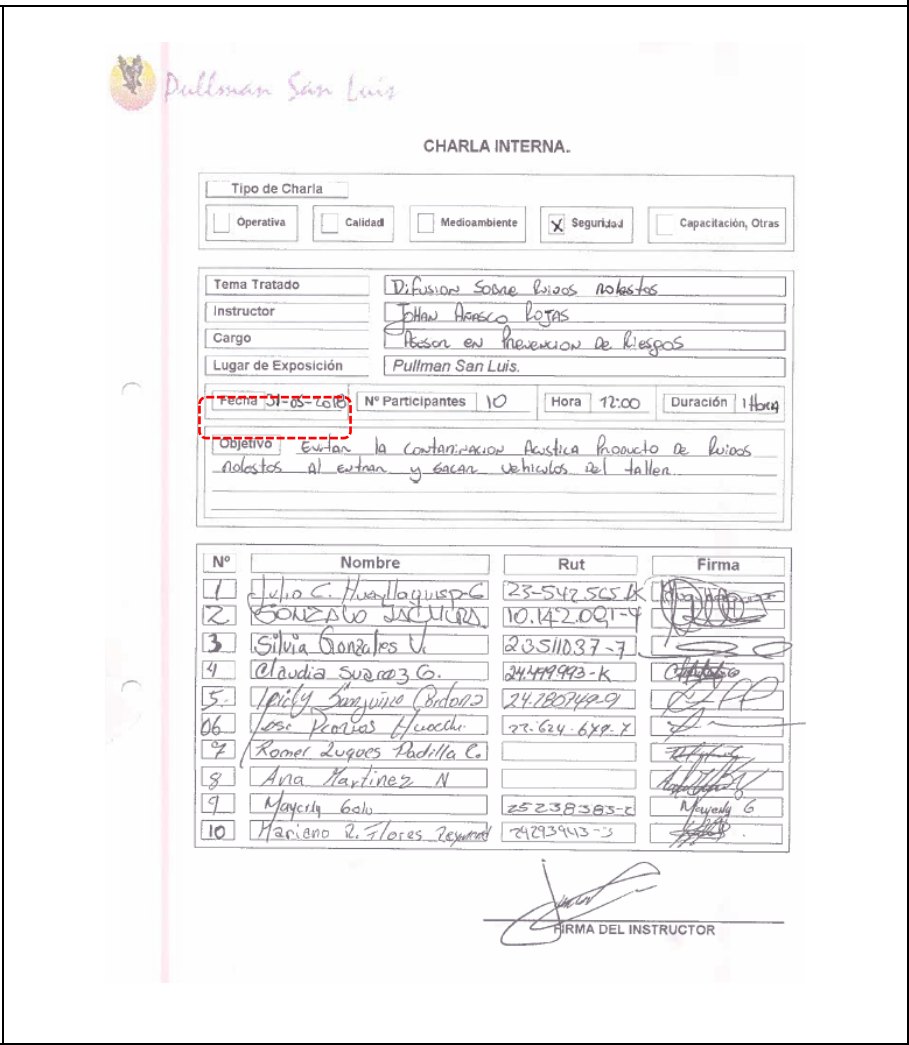 Pullman San Luis
CHARLA INTERNA.
Tipo de Charla
Operativa Calidad Medioambiente X Seguridad Capacitación, Otras
Tema Tratado Difusion Sobre Ruidos Molestos
Instructor Johan Rojas
Cargo Asesor en Prevencion De Riesgos
Lugar de Exposición Pullman San Luis.
Fecha 31-05-2018 Nº Participantes 10 Hora 12:00 Duración 1 Hora
Objetivo Evitar la Contaminacion Acustica Producto De Ruidos
Molestos Al entrar y sacar vehiculos del taller
Nº Nombre Rut Firma
1 Julio C. 23-542.565-K
2 GONZALO 10.142.091-4
3 Silvia Gonzales V. 23511037-7
4 Claudia Suarez G. 24.499.993-K
5.- Sanguino Cardona 24.280749-9
06 Jose 22.624.679-7
7 Romer Luques Padilla C.
8 Ana Martinez N
9 Mayerly Golu 25238383-2 Mayerly G
10 Mariano R. Flores 24293943-3
FIRMA DEL INSTRUCTOR